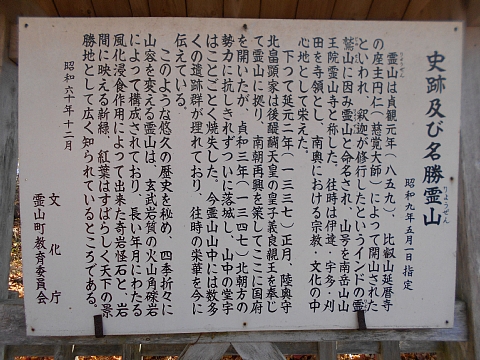 史跡及び名勝霊山
りょうぜん
昭和九年五月一日指定
霊山は貞観元年（八五九）、比叡山延暦寺
の座主円仁（慈覚大師）によって開山された
といわれ、釈迦が修行したというインドの霊
鷲山に因み霊山と命名され、山号を南岳山山
王院霊山寺と称した。往時は伊達・宇多・刈
田を寺領とし、南奥における宗教・文化の中
心地として栄えた。
下つて延元二年（一三三七）正月、陸奥守
北畠顕家は後醍醐天皇の皇子義良親王を奉じ
て霊山に拠り、南朝再興を策してここに国府
を開いたが、貞和三年（一三四七）北朝方の
勢力に抗しきれずついに落城し、山中の堂宇
はことごとく焼失した。今霊山山中には数多
くの遺跡群が埋れており、往時の栄華を今に
伝えている。
このような悠久の歴史を秘め、四季折々に
山容を変える霊山は、玄武岩質の火山角礫岩
によって構成されており、長い年月にわたる
風化浸食作用によって出来た奇岩怪石と、岩
間に映える新緑、紅葉はすばらしく天下の景
勝地として広く知られているところである。
昭和六十年十二月
文化庁
霊山町教育委員会